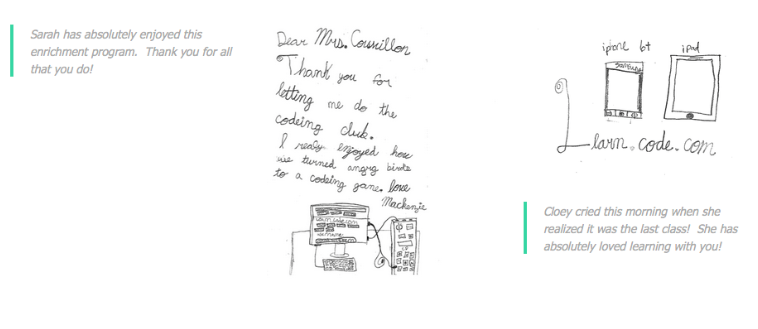 Sarah has absolutely enjoyed this
enrichment program.  Thank you for all
that you do!
Dear Mrs. Courillon
Thank you for
letting me do the
codeing club.
I realy enjoyed how
we turned angry birds
to a codeing game. love
Mackenzie
iphone 6+
ipad
samsung
Learn.code.com
Cloey cried this morning when she
realized it was the last class!  She has
absolutely loved learning with you!